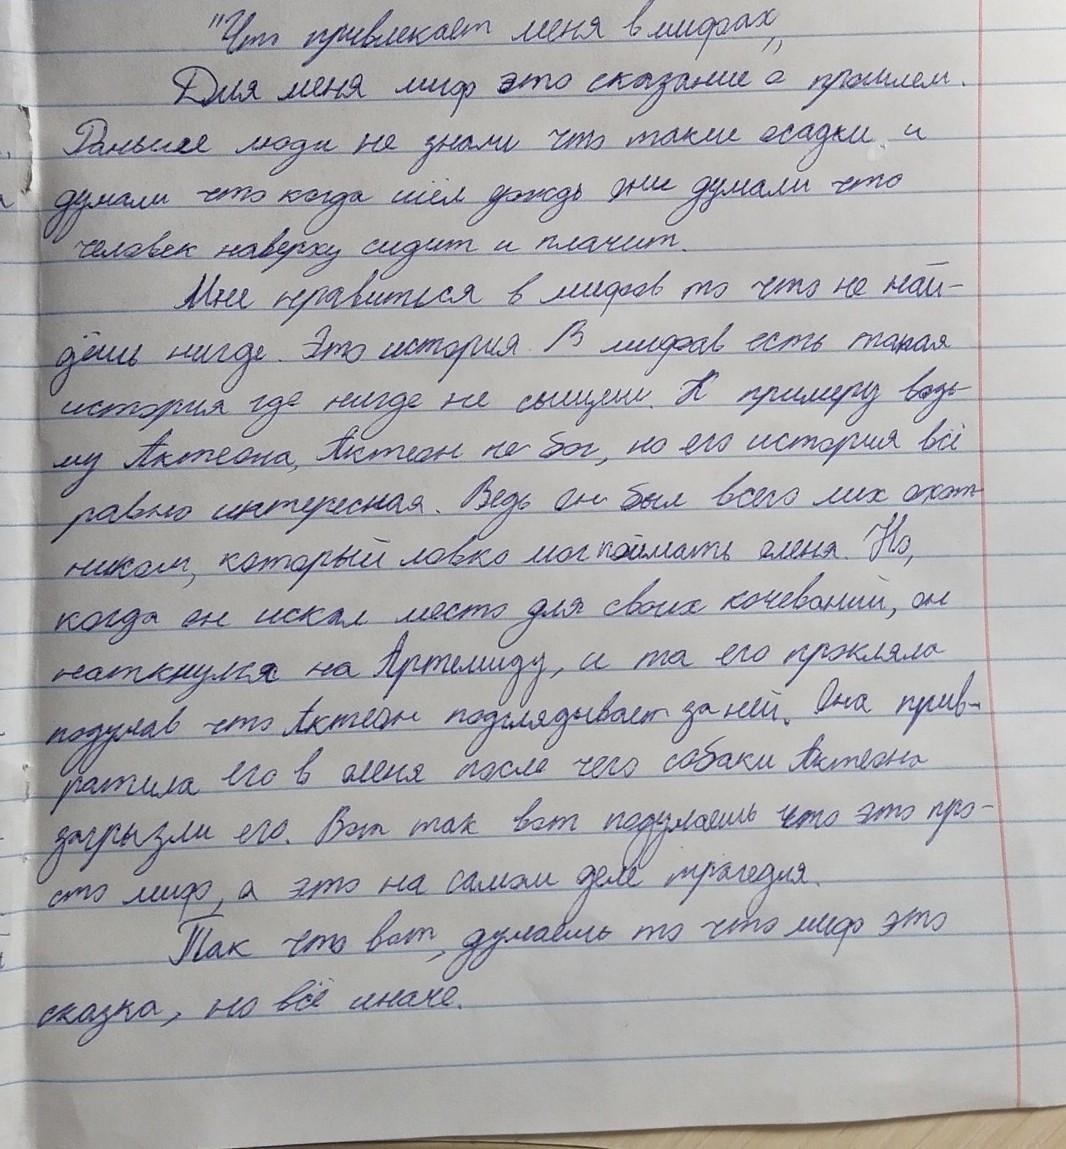 "Что привлекает меня в мифах„
Для меня миф это сказание о прошлем.
Раньше люди не знали что такие осадки и
думали что когда шёл дождь они думали что
человек наверху сидит и плачит.
Мне нравиться в мифов то что не най-
дёшь нигде. Это история. В мифав есть такая
история где нигде не сыщеш. К примеру возь-
му Актеона, Актеон не бог, но его история всё
равно интересная. Ведь он был всего лих охот-
ником, который ловко мог поймать оленя. Но,
когда он искал место для своих кочеваний, он
наткнулся на Артемиду, и та его прокляла
подумав что Актеон подглядывает за ней. Она прив-
ратила его в оленя после чего собаки Актеона
загрызли его. Вот так вот подумаешь что это про-
сто миф, а это на самом деле трагедия.
Так что вот, думаешь то что миф это
сказка, но всё иначе.